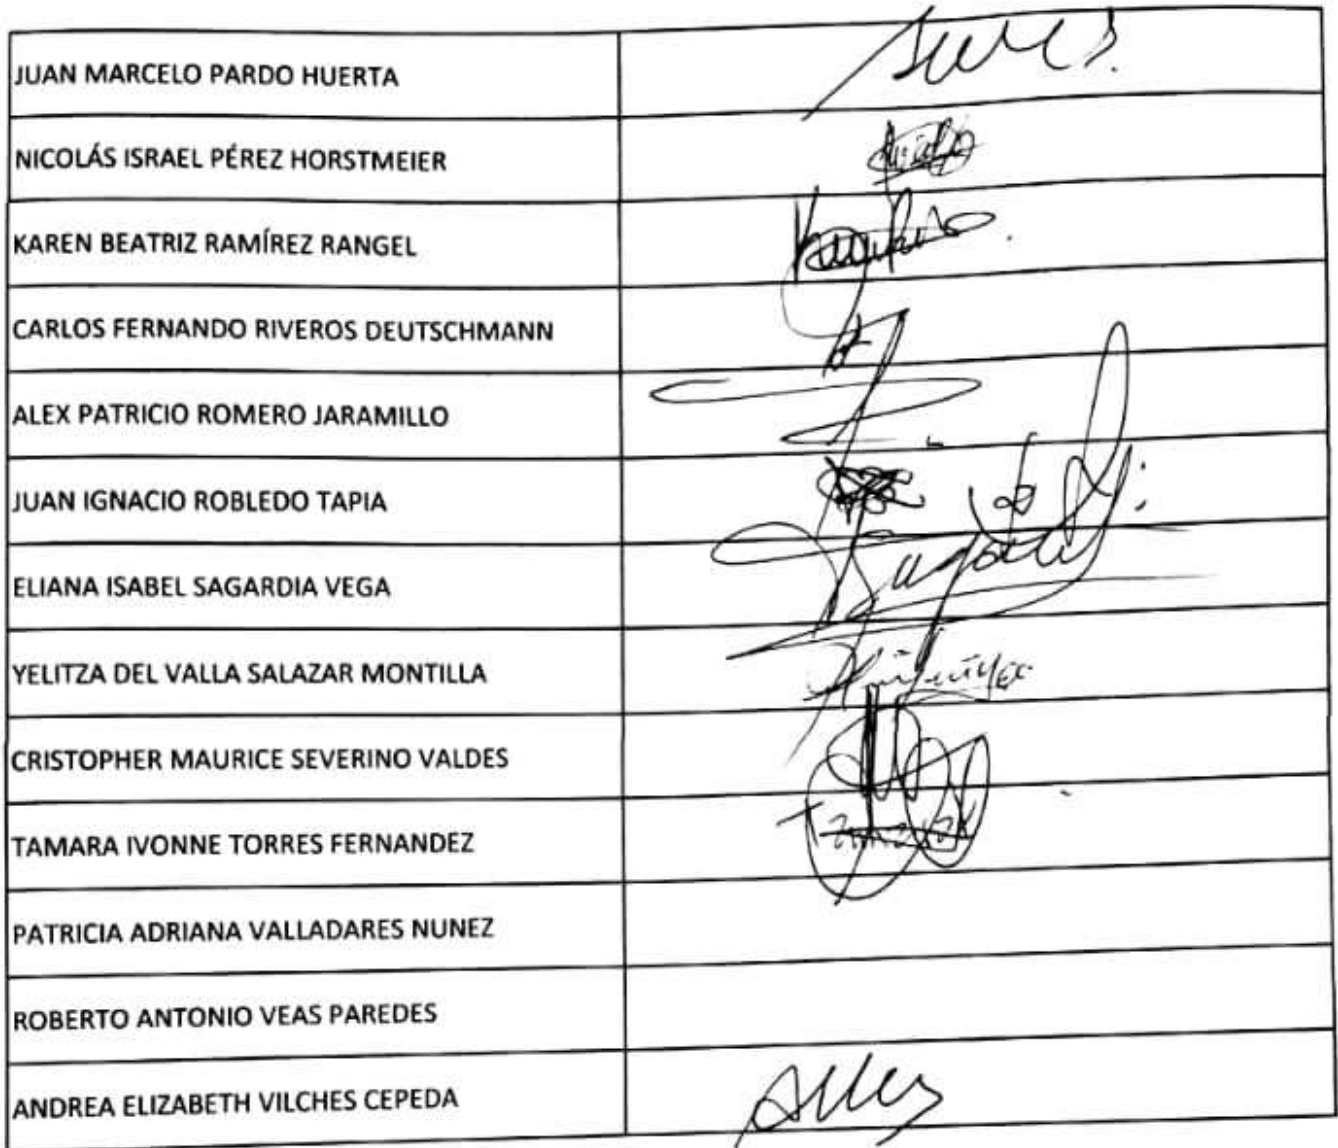 JUAN MARCELO PARDO HUERTA
NICOLÁS ISRAEL PÉREZ HORSTMEIER
KAREN BEATRIZ RAMÍREZ RANGEL
CARLOS FERNANDO RIVEROS DEUTSCHMANN
ALEX PATRICIO ROMERO JARAMILLO
JUAN IGNACIO ROBLEDO TAPIA
ELIANA ISABEL SAGARDIA VEGA
YELITZA DEL VALLA SALAZAR MONTILLA
CRISTOPHER MAURICE SEVERINO VALDES
TAMARA IVONNE TORRES FERNANDEZ
PATRICIA ADRIANA VALLADARES NUNEZ
ROBERTO ANTONIO VEAS PAREDES
ANDREA ELIZABETH VILCHES CEPEDA